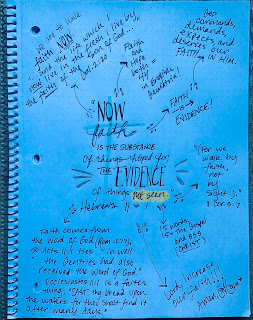 So we live
FAITH NOW
in the life which I
now live in the flesh I live by
the faith of the Son of God...
Gal. 2:20
Faith
and
Hope
both =
in positive
God commands,
demands,
expects, and
deserves our
FAITH in HIM.
FAITH
EVIDENCE!
"NOW
faith
IS THE SUBSTANCE
Of things hoped for
THE EVIDENCE
of things not seen."
Hebrews 11:1
(For we
walk by
faith,
not by
sight:).
2 Cor. 5:7
Faith comes from
the word of God (Rom. 10:17),
so Acts 11:1 ties in well:
"...the Gentiles had also
received the word of God."
Ecclesiastes 11:1 is a faith
thing: "Cast thy bread upon
the waters: for thou shalt find it
after many days."
(5 words,
and
Lord, increase
our faith!!!
Amen.